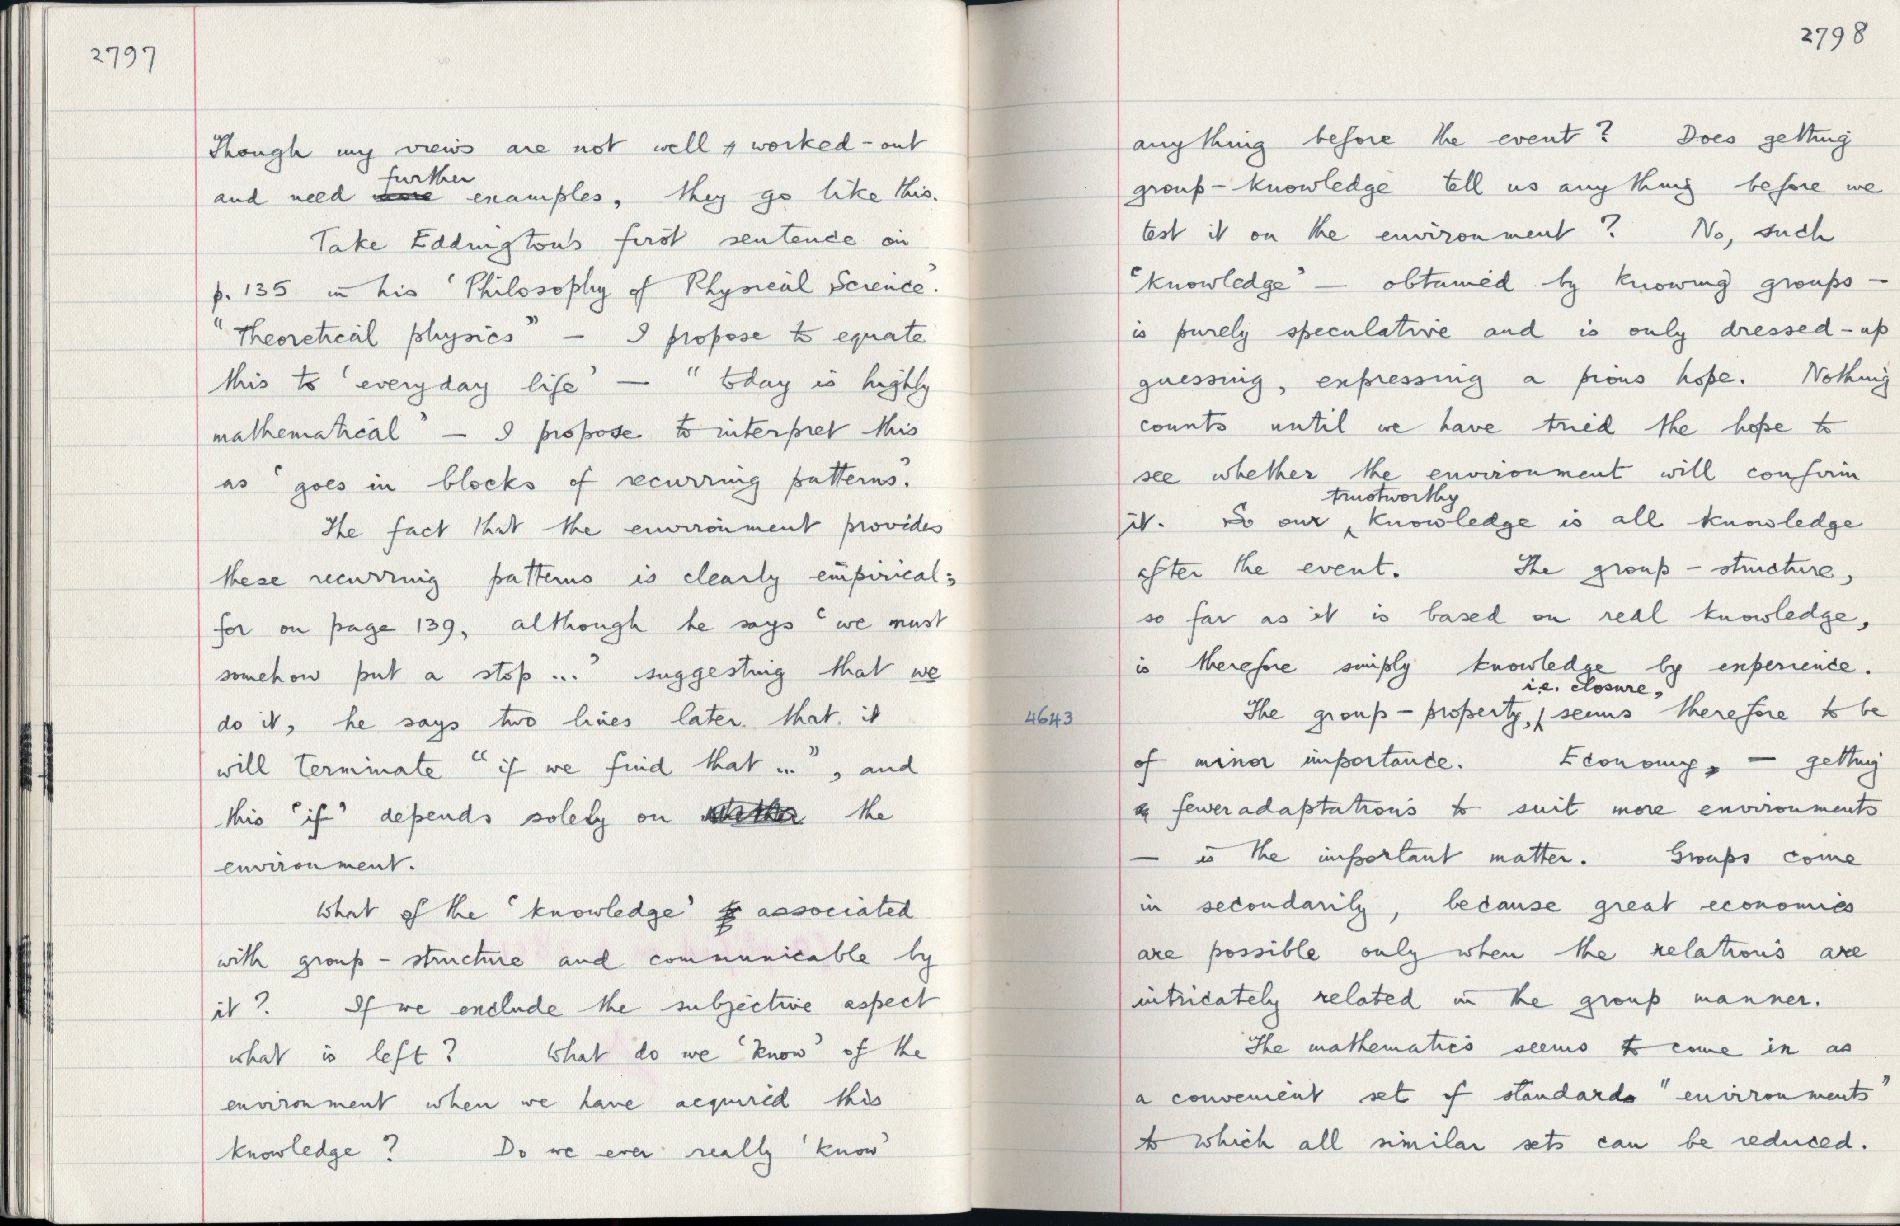 2797
Though my views are not well worked-out
and need further examples, they go like this.
Take Eddington's first sentence on
p. 135 in his 'Philosophy of Physical Science'.
"Theoretical physics" — I propose to equate
this to 'everyday life' — "today is highly
mathematical" — I propose to interpret this
as 'goes in blocks of recurring patterns'.
The fact that the environment provides
these recurring patterns is clearly empirical;
for on page 139, although he says 'we must
somehow put a stop ...' suggesting that we
do it, he says two lines later that it
will terminate "if we find that ...", and
this 'if' depends solely on the
environment.
What of the 'knowledge' associated
with group-structure and communicable by
it? If we exclude the subjective aspect
what is left? What do we 'know' of the
environment when we have acquired this
knowledge? Do we ever really 'know'
2798
anything before the event? Does getting
group-knowledge tell us anything before we
test it on the environment? No, such
'knowledge' — obtained by knowing groups —
is purely speculative and is only dressed-up
guessing, expressing a pious hope. Nothing
counts until we have tried the hope to
see whether the environment will confirm
it. So our trustworthy knowledge is all knowledge
after the event. The group-structure,
so far as it is based on real knowledge,
is therefore simply knowledge by experience.
4643 The group-property, i.e. closure, seems therefore to be
of minor importance. Economy, — getting
fewer adaptations to suit more environments
— is the important matter. Groups come
in secondarily, because great economies
are possible only when the relations are
intricately related in the group manner.
The mathematics seems to come in as
a convenient set of standard "environments"
to which all similar sets can be reduced.